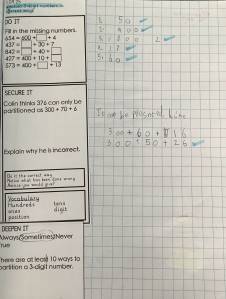 DO IT
Fill in the missing numbers.
654 = 600 + □ + 4
437 = □ + 30 + 7
842 = □ + 40 + □
427 = 400 + 10 + □
573 = 400 + □ + 13
1. 50
2. 400
3. 800 2
4. 17
5. 160
SECURE IT
Colin thinks 376 can only be
partitioned as 300 + 70 + 6
Explain why he is incorrect.
It can be
300 + 60 + 16
300 + 50 + 26
Do it the correct way
Notice what has been done wrong
Advice you would give?
Vocabulary
Hundreds
tens
ones
digit
position
DEEPEN IT
Always/Sometimes/Never
True
There are at least 10 ways to
partition a 3-digit number.